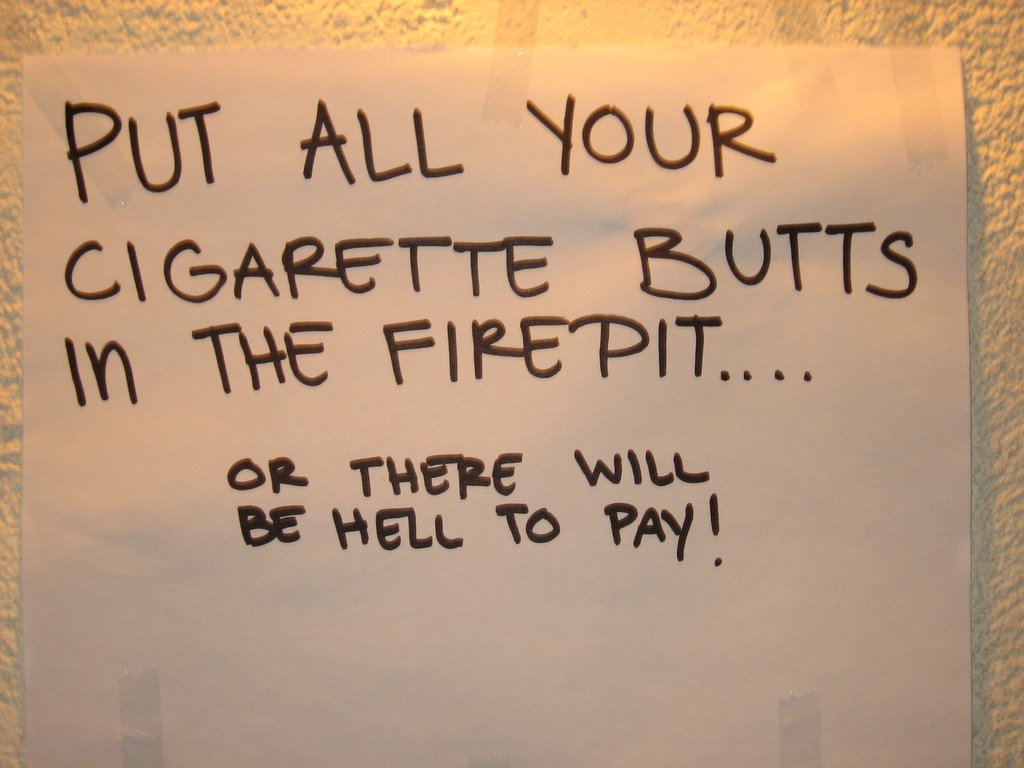 PUT ALL YOUR
CIGARETTE BUTTS
In THE FIREPIT....
OR THERE WILL
BE HELL TO PAY!